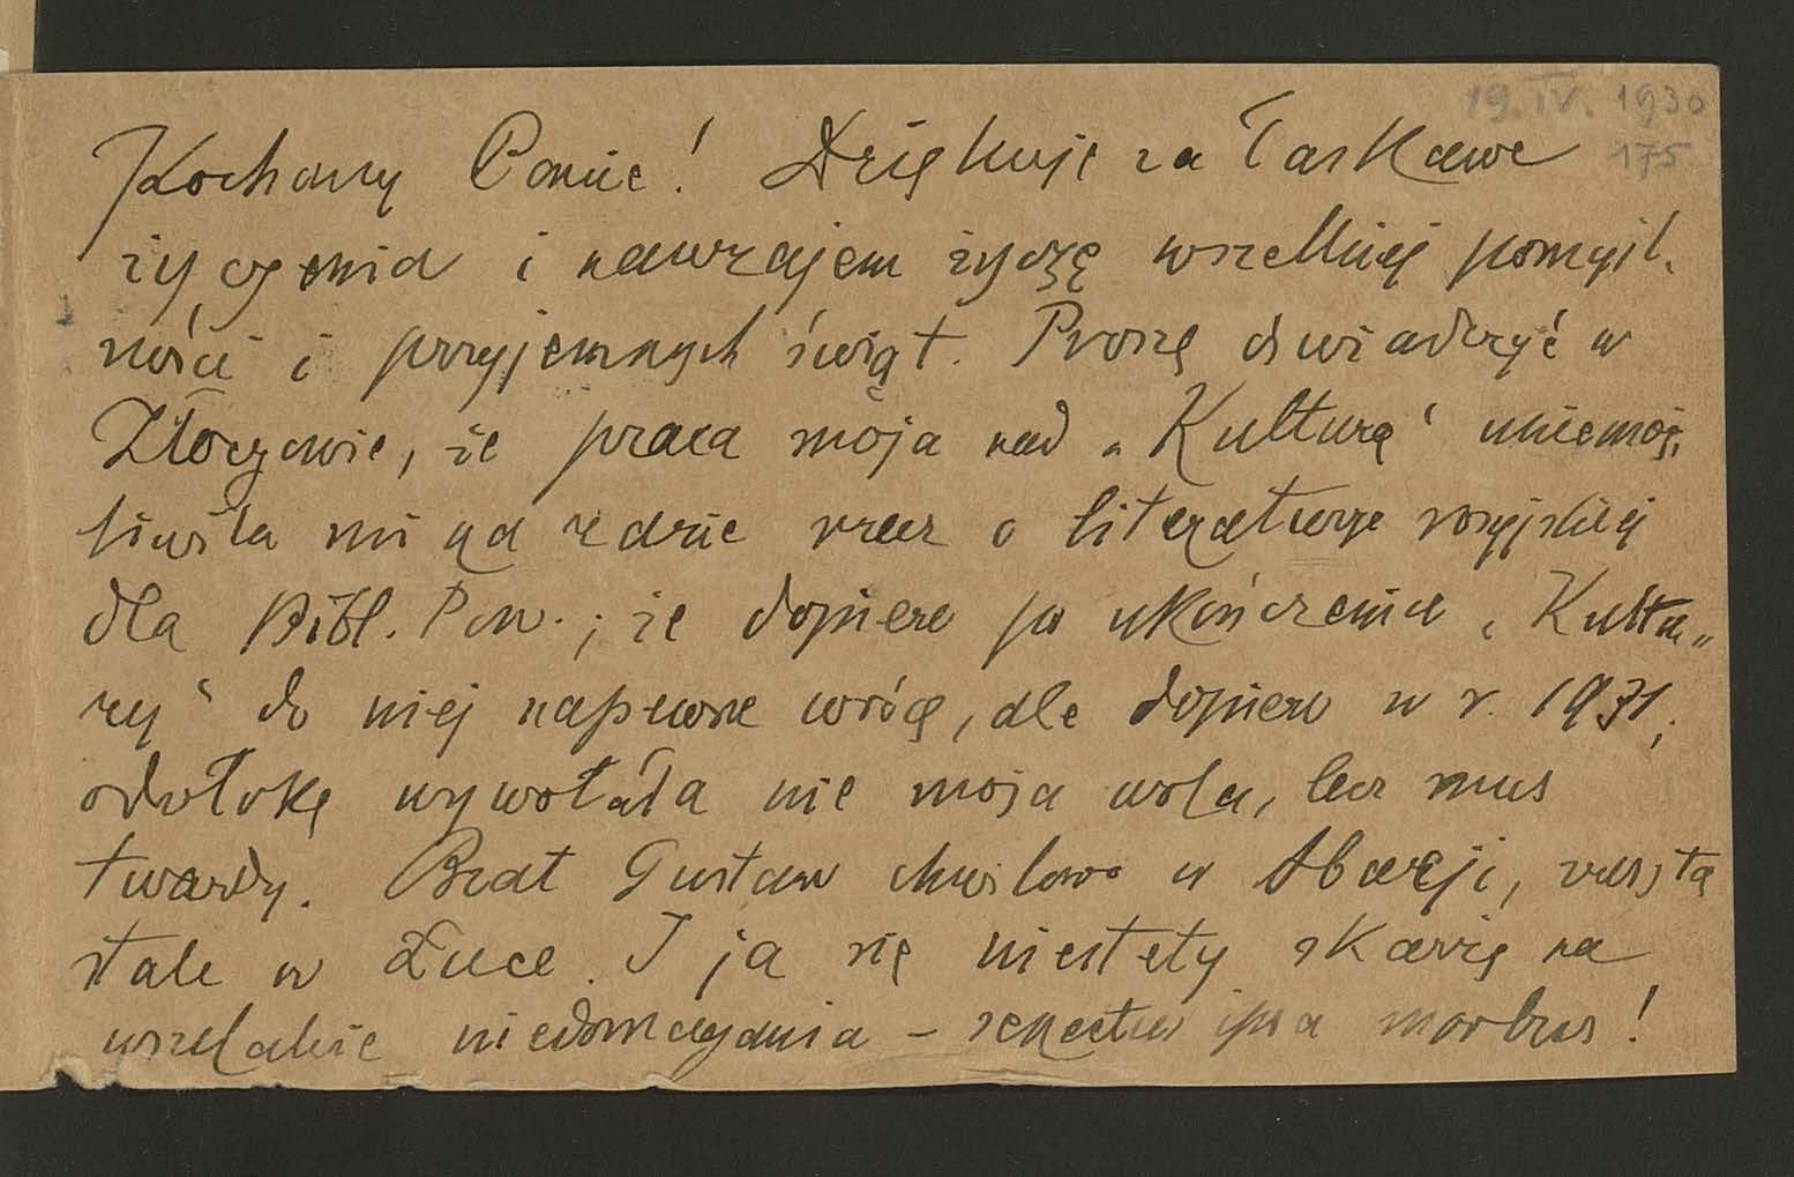 19. IV. 1930
175
Kochany Panie! Dziękuję za łaskawe
życzenia i nawzajem życzę wszelkiej pomyśl-
ności i przyjemnych świąt. Proszę oświadczyć w
Złoczowie, że praca moja nad „Kulturą“ uniemoż-
liwiła mi na razie rzecz o literaturze rosyjskiej
dla Bibl. Pow.; że dopiero po ukończeniu „Kultu-
ry“ do niej napewne wrócę, ale dopiero w r. 1931;
odwłokę wywołała nie moja wola, lecz mus
twardy. Brat Gustaw chwilowo w Abazji, zresztą
stale w Łuce. I ja się niestety skarżę na
wszelakie niedomagania – senectus ipsa morbus!